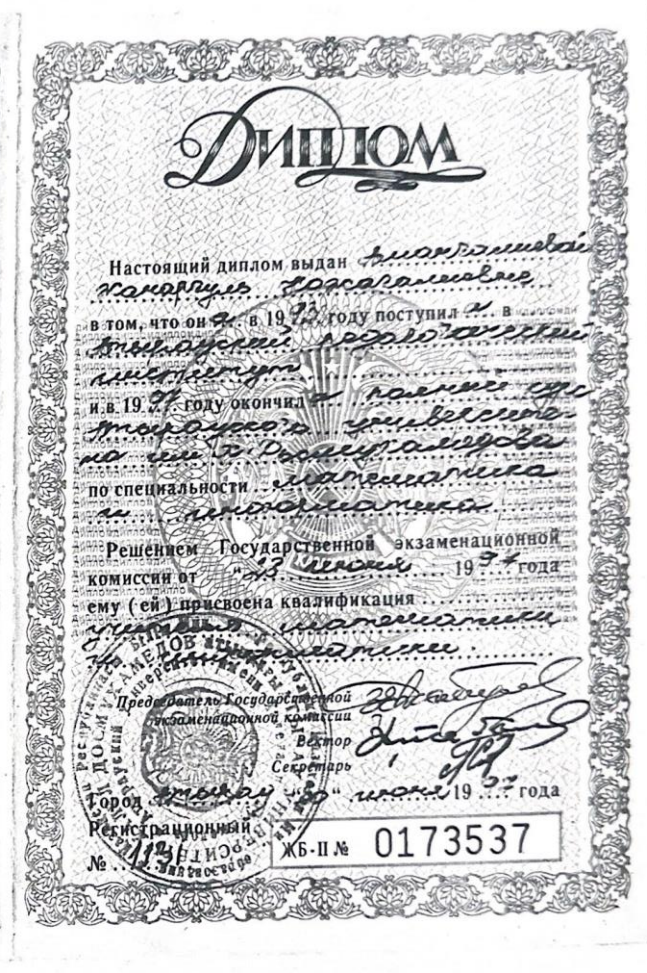 ДИПЛОМ
Настоящий диплом выдан
Жанаргуль
в том, что он а в 1992 году поступил а в
Атырауский педагогический
институт
и в 1997 году окончил а полный курс
Атырауского университе-
та им Х Досмухамедова
по специальности математика
и информатика
Решением Государственной экзаменационной
комиссии от "23 июня 1997 года
ему ( ей ) присвоена квалификация
учитель математики
информатики.
Председатель Государственной
экзаменационной комиссии
Ректор
Секретарь
Город Атырау " " июня 1997 года
Регистрационный
№
ЖБ-II № 0173537